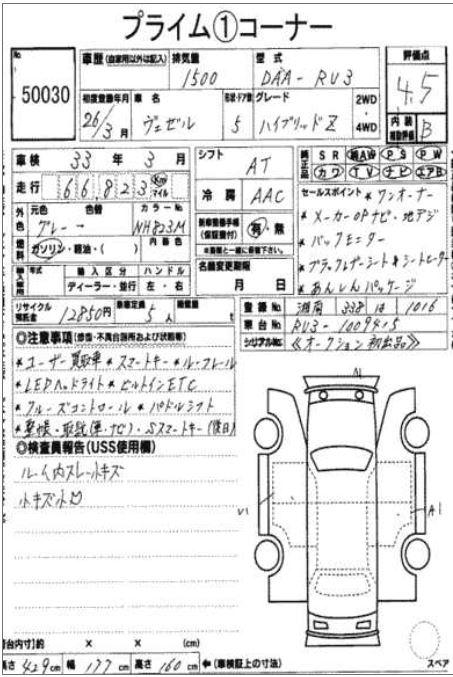 プライム①コーナー
No.
50030
車歴 (自家用以外は記入)
排気量 1500
型式 DAA-RU3
評価点 4.5
初度登録年月 26/3月
車名 ヴェゼル
形状・ドア数 5
グレード ハイブリッドZ
2WD
4WD
内装 B
車検 33年3月
シフト AT
純正品 SR 革AW PS PW
カワ TV ナビ エアB
走行 66823 Km マイル
冷房 AAC
セールスポイント *ワンオーナー
*メーカーOPナビ・地デジ
*バックモニター
*ブラックレザーシート*シートヒーター
*あんしんパッケージ
外色 元色 グレー→
色替
カラーNo. NH823M
内装色
燃料 ガソリン・軽油・( )
新車整備手帳(保証書付) 有・無
輸入車用 年式
輸入区分 ディーラー・並行
ハンドル 左・右
名義変更期限
月 日
リサイクル預託金 12850円
乗車定員 5人
積載量 t
登録No. 湘南 338 は 1016
車台No. RU3-1009415
シリアルNo. 《オークション初出品》
◎注意事項(修復・不具合箇所および状態等)
*ユーザー買取車*スマートキー*ルーフレール
*LEDヘッドライト*ビルトインETC
*クルーズコントロール*パドルシフト
*車検・取説(車・ナビ)・Sスマートキー(後日)
◎検査員報告(USS使用欄)
ルーイ内スレーキズ
小キズ小凹
A1
U1
A1
(cm)
長さ 429cm 幅 177cm 高さ 160cm ←(車検証上の寸法)
スペア